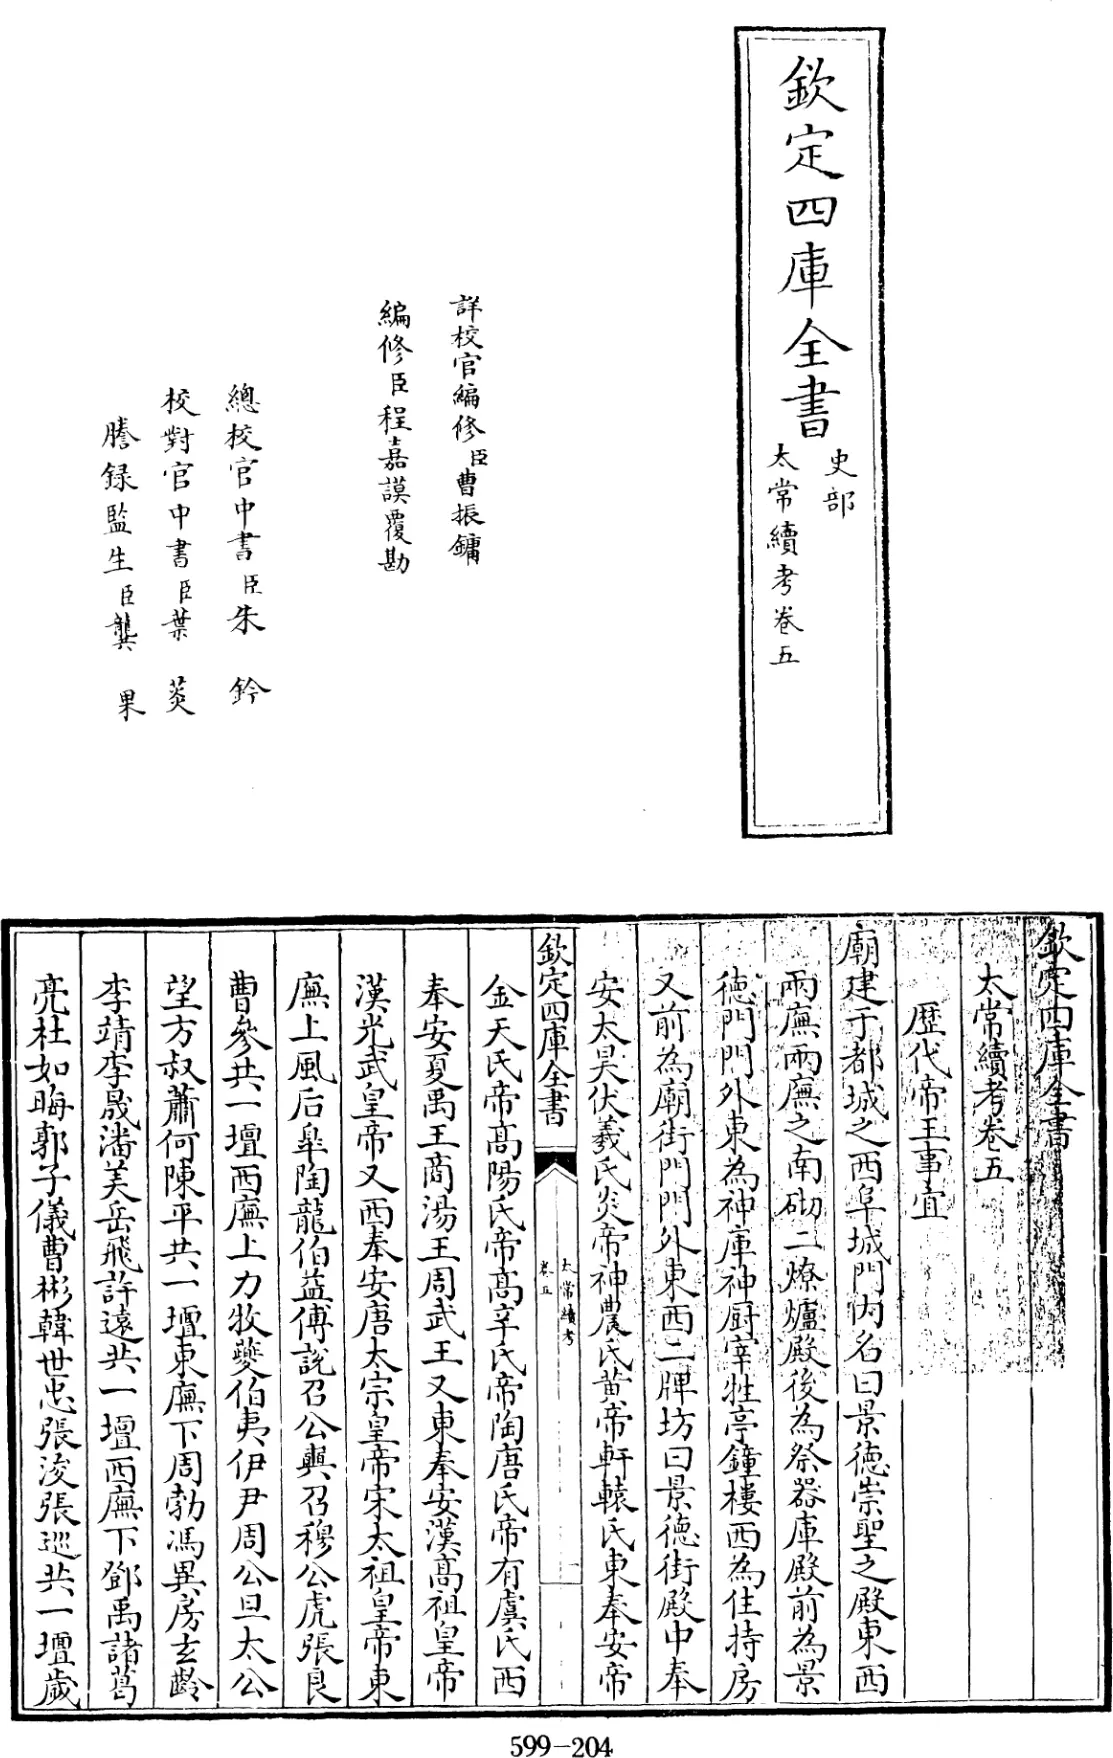 欽定四庫全書
史部
太常續考卷五
詳校官編修臣曹振鏞
編修臣程嘉謨覆勘
總校官中書臣朱鈐
校對官中書臣葉菼
謄録監生臣龔果
欽定四庫全書
太常續考卷五
歴代帝王事宜
廟建于都城之西阜城門内名曰景德崇聖之殿東西
兩廡兩廡之南砌二燎爐殿後為祭器庫殿前為景
德門門外東為神庫神厨宰牲亭鐘樓西為住持房
又前為廟街門門外東西二牌坊曰景德街殿中奉
安太昊伏羲氏炎帝神農氏黄帝軒轅氏東奉安帝
欽定四庫全書
太常續考
卷五
一
金天氏帝髙陽氏帝髙辛氏帝陶唐氏帝有虞氏西
奉安夏禹王商湯王周武王又東奉安漢髙祖皇帝
漢光武皇帝又西奉安唐太宗皇帝宋太祖皇帝東
廡上風后皐陶龍伯益傅說召公奭召穆公虎張良
曹參共一壇西廡上力牧夔伯夷伊尹周公旦太公
望方叔蕭何陳平共一壇東廡下周勃馮異房玄齡
李靖李晟潘美岳飛許遠共一壇西廡下鄧禹諸葛
亮杜如晦郭子儀曹彬韓世忠張浚張巡共一壇歳
599-204